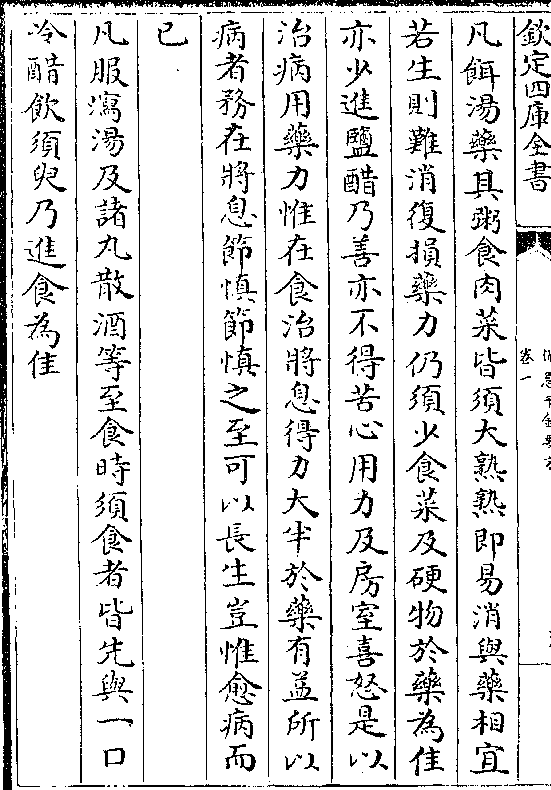 欽定四庫全書
卷一
凡餌湯藥其粥食肉菜皆須大熟熟即易消與藥相宜
若生則難消復損藥力仍須少食菜及硬物於藥為佳
亦少進鹽醋乃善亦不得苦心用力及房室喜怒是以
治病用藥力惟在食治將息得力大半於藥有益所以
病者務在將息節慎節慎之至可以長生豈惟愈病而
已
凡服瀉湯及諸丸散酒等至食時須食者皆先與一口
冷醋飲須臾乃進食為佳